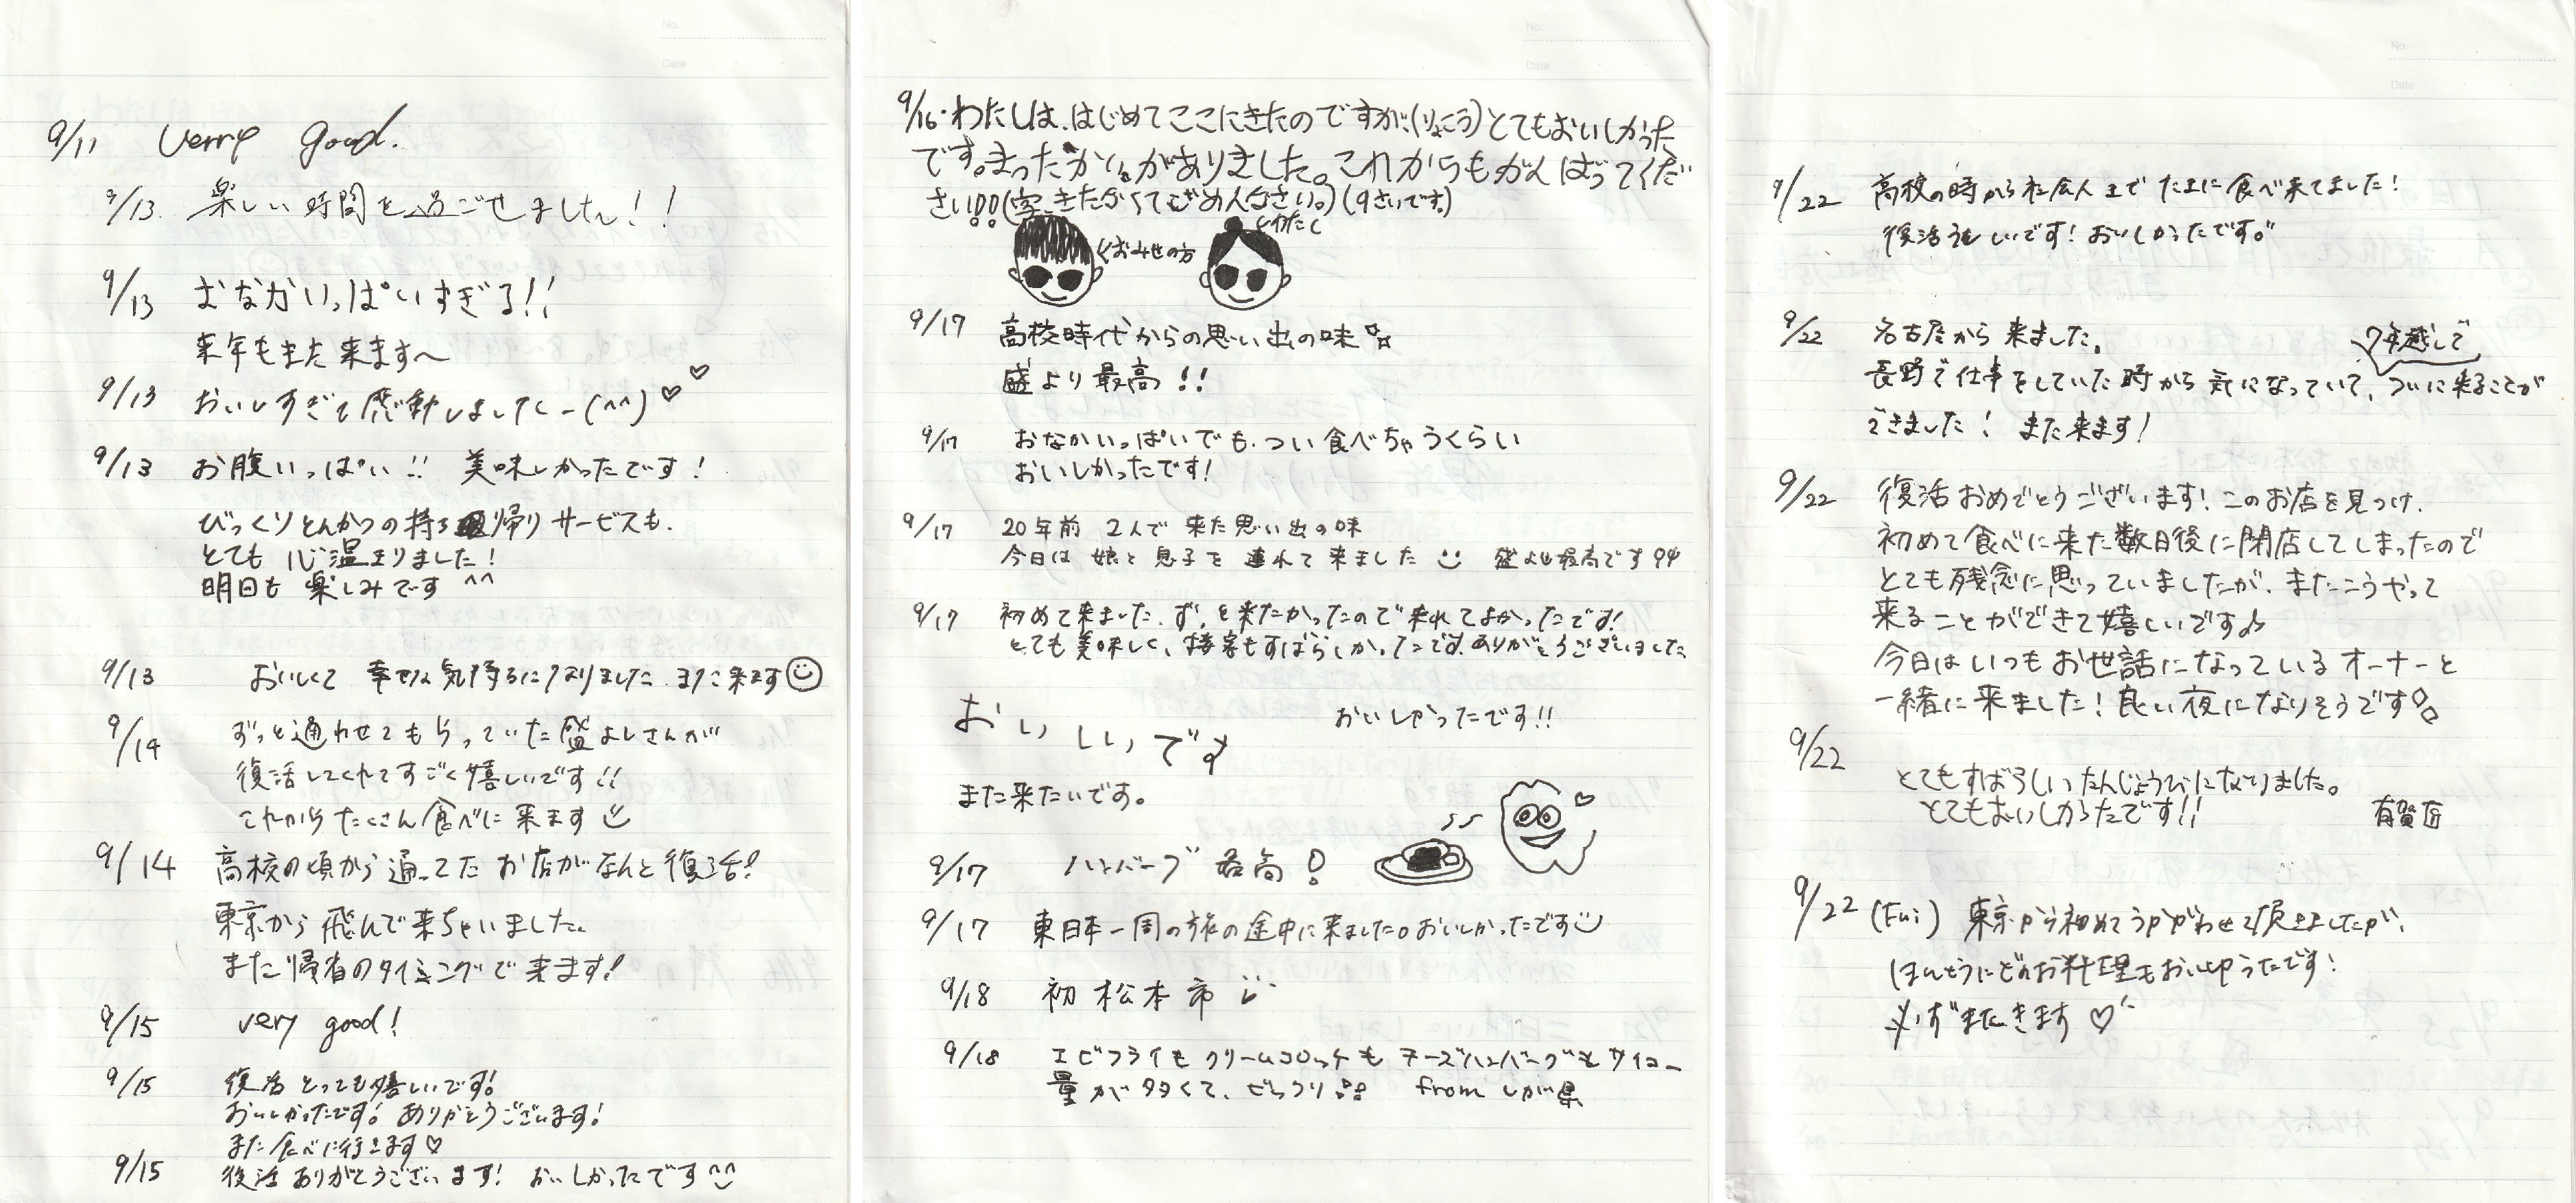 No.
Date
9/11 Verry good.
9/13. 楽しい時間を過ごせました!!
9/13 おなかいっぱいすぎる!!
来年もまた来ます〜
9/13 おいしすぎて感動しましたー(^^)♡♡
9/13 お腹いっぱい!! 美味しかったです!
びっくりとんかつの持ち帰りサービスも、
とても心温まりました!
明日も楽しみです ^^
9/13 おいしくて 幸せな気持ちになりました。また来ます☺
9/14 ずっと通わせてもらっていた盛よしさんが
復活してくれてすごく嬉しいです!!
これからたくさん食べに来ます
9/14 高校の頃から通ってたお店がなんと復活!
東京から飛んで来ちゃいました。
また帰省のタイミングで来ます!
9/15 very good!
9/15 復活とっても嬉しいです!
おいしかったです! ありがとうございます!
また食べに行きます♡
9/15 復活ありがとうございます! おいしかったです^^
No.
Date
9/16. わたしは、はじめてここにきたのですが、(りょこう)とてもおいしかった
です。まったかいがありました。これからもがんばってくだ
さい!!(字、きたなくてごめんなさい。)(9さいです。)
おみせの方
わたし
9/17 高校時代からの思い出の味
盛よし最高!!
9/17 おなかいっぱいでも、つい食べちゃうくらい
おいしかったです!
9/17 20年前 2人で来た思い出の味
今日は娘と息子を連れて来ました 盛よし最高です
9/17 初めて来ました。ずっと来たかったので来れてよかったです!
とても美味しく、接客もすばらしかったです。ありがとうございました
おいしいです
おいしかったです!!
また来たいです。
9/17 ハンバーグ 最高!
9/17 東日本一周の旅の途中に来ました。おいしかったです
9/18 初 松本市
9/18 エビフライも クリームコロッケも チーズハンバーグもサイコー
量が多くて、びっくり from しが県
No.
Date
9/22 高校の時から社会人まで たまに食べ来てました!
復活うれしいです! おいしかったです。
9/22 名古屋から来ました。
7年越しで
長野で仕事をしていた時から気になっていて、ついに来ることが
できました! また来ます!
9/22 復活おめでとうございます! このお店を見つけ、
初めて食べに来た数日後に閉店してしまったので
とても残念に思っていましたが、またこうやって
来ることができて嬉しいです♪
今日はいつもお世話になっているオーナーと
一緒に来ました! 良い夜になりそうです
9/22 とてもすばらしいたんじょうびになりました。
とてもおいしかったです!! 有賀匠
9/22 (Fri) 東京から初めてうかがわせて頂きましたが、
ほんとうにどのお料理もおいしかったです!
必ずまたきます♡